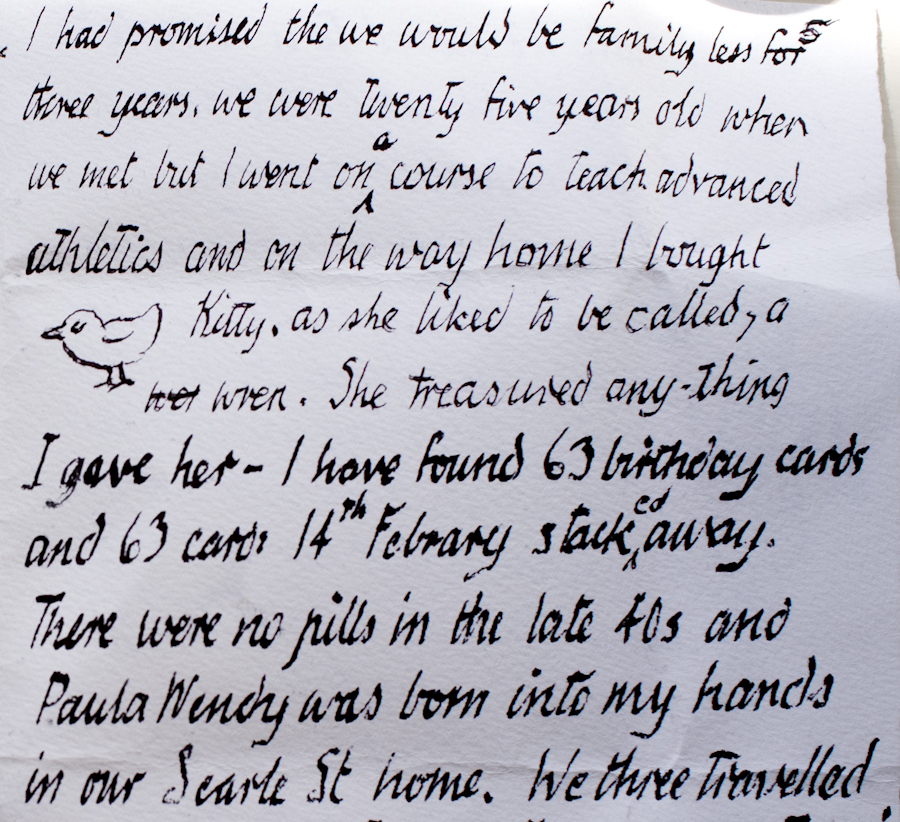 . I had promised the we would be family less for
three years. we were twenty five years old when
we met but I went on a course to teach advanced
athletics and on the way home I bought
Kitty, as she liked to be called, a
wren. She treasured any-thing
I gave her - I have found 63 birthday cards
and 63 cards 14th Febrary stacked away.
There were no pills in the late 40s and
Paula Wendy was born into my hands
in our Searle St home. We three travelled